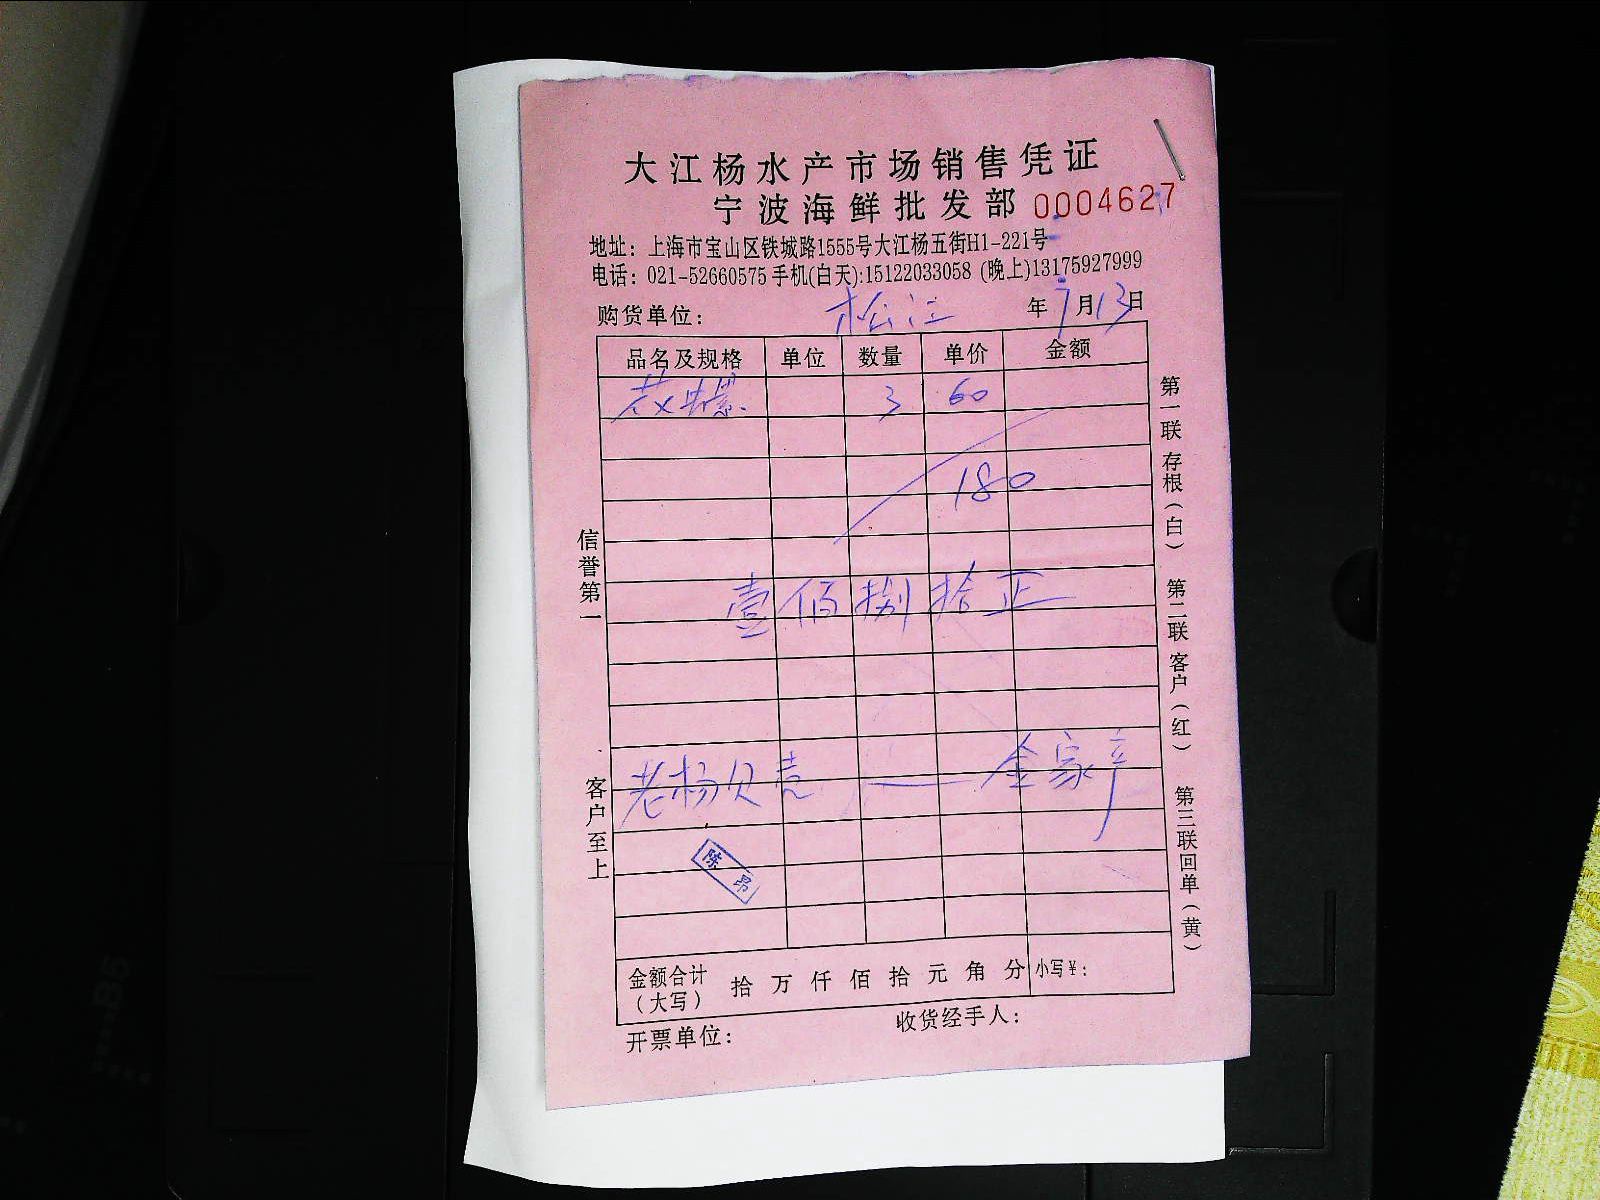 大江杨水产市场销售凭证
宁波海鲜批发部 0004627
地址：上海市宝山区铁城路1555号大江杨五街H1-221号
电话：021-52660575 手机(白天):15122033058 (晚上)13175927999
购货单位： 松江 年 7月13日
品名及规格 单位 数量 单价 金额
3 60
180
壹佰捌拾正
老杨贝壳 — 金家产
陈昂
金额合计（大写） 拾万仟佰拾元角分 小写￥：
开票单位： 收货经手人：
信誉第一
客户至上
第一联存根（白）
第二联客户（红）
第三联回单（黄）